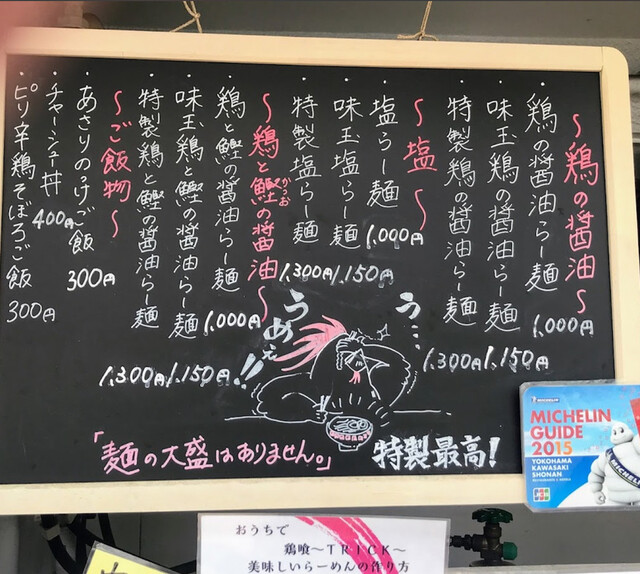 ～鶏の醤油～
・鶏の醤油らー麺 1,000円
・味玉鶏の醤油らー麺 1,150円
・特製鶏の醤油らー麺 1,300円
～塩～
・塩らー麺 1,000円
・味玉塩らー麺 1,150円
・特製塩らー麺 1,300円
～鶏と鰹の醤油～
かつお
・鶏と鰹の醤油らー麺 1,000円
・味玉鶏と鰹の醤油らー麺 1,150円
・特製鶏と鰹の醤油らー麺 1,300円
～ご飯物～
・あさりのっけご飯 300円
・チャーシュー丼 400円
・ピリ辛鶏そぼろご飯 300円
う…
うめぇ!!
「麺の大盛はありません。」
特製最高!
MICHELIN
GUIDE
2015
YOKOHAMA
KAWASAKI
SHONAN
JCB
おうちで
鶏喰～TRICK～
美味しいらーめんの作り方